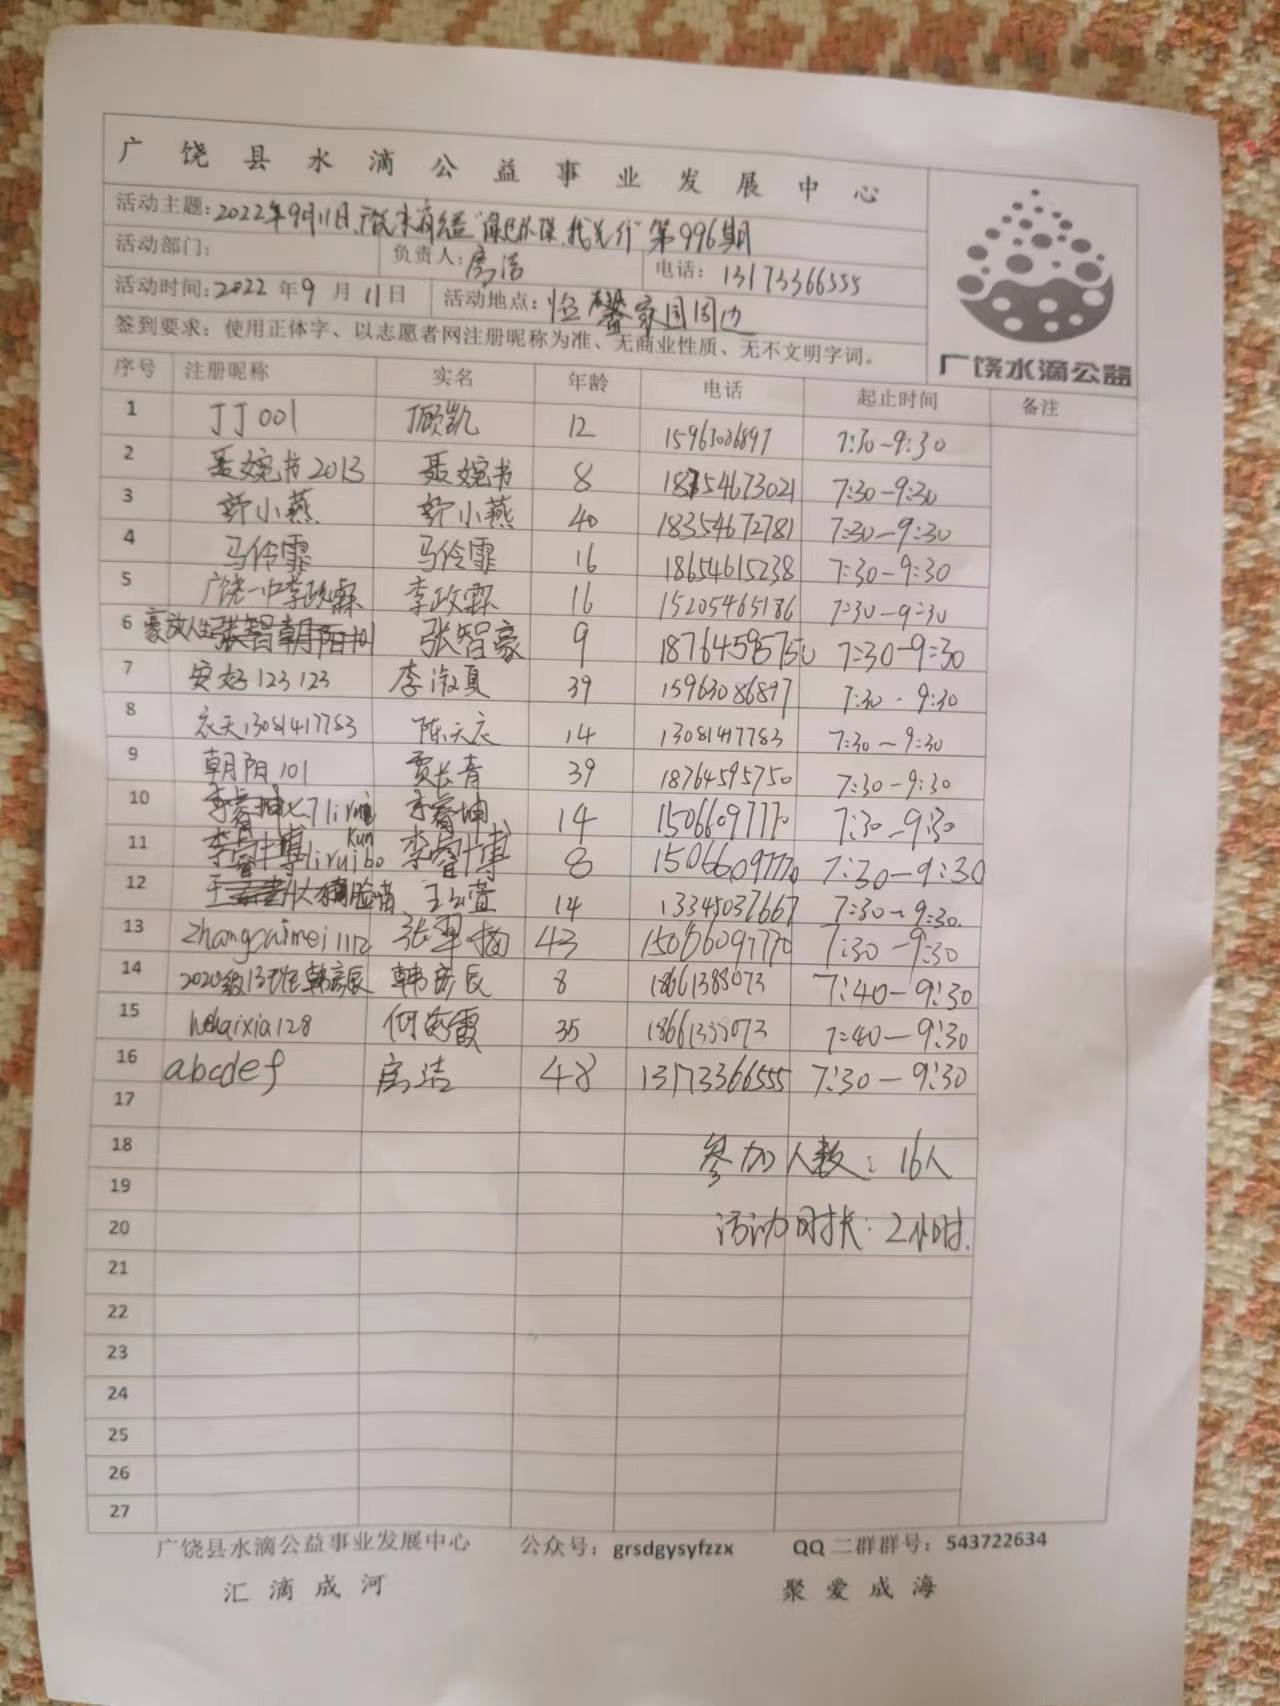 广饶县水滴公益事业发展中心
活动主题:2022年9月11日,广饶水滴公益"绿色环保,我先行"第996期
活动部门: 负责人:房洁 电话:13173366555
活动时间:2022年9月11日 活动地点:恒馨家园周边
签到要求:使用正体字、以志愿者网注册昵称为准、无商业性质、无不文明字词。
广饶水滴公益
序号 注册昵称 实名 年龄 电话 起止时间 备注
1 丁丁001 丁顾凯 12 15963086897 7:30-9:30
2 聂婉书2013 聂婉书 8 18354673021 7:30-9:30
3 小燕 小燕 40 18354672781 7:30-9:30
4 马伶霏 马伶霏 16 18654615238 7:30-9:30
5 广饶一中李政霖 李政霖 16 15205465186 7:30-9:30
6 豪放人生张智朝阳101 张智豪 9 18764595750 7:30-9:30
7 安好123123 李淑夏 39 15963086897 7:30-9:30
8 衣天13081417783 陈天衣 14 13081417783 7:30-9:30
9 朝阳101 贾长青 39 18764595750 7:30-9:30
10 李睿坤 lirui kun 李睿坤 14 15066097770 7:30-9:30
11 李睿博liruibo 李睿博 8 15066097770 7:30-9:30
12 大猫脸喵 王 萱 14 13345037667 7:30-9:30.
13 zhangcuimei1112 张翠梅 43 15066097770 7:30-9:30
14 2020级 韩彦辰 韩彦辰 8 18661388073 7:40-9:30
15 hehaixia128 何海霞 35 18661388073 7:40-9:30
16 abcdef 房洁 48 13173366555 7:30-9:30
17
18 参加人数:16人
19
20 活动时长:2小时.
21
22
23
24
25
26
27
广饶县水滴公益事业发展中心 公众号:grsdgysyfzzx QQ二群群号:543722634
汇滴成河 聚爱成海